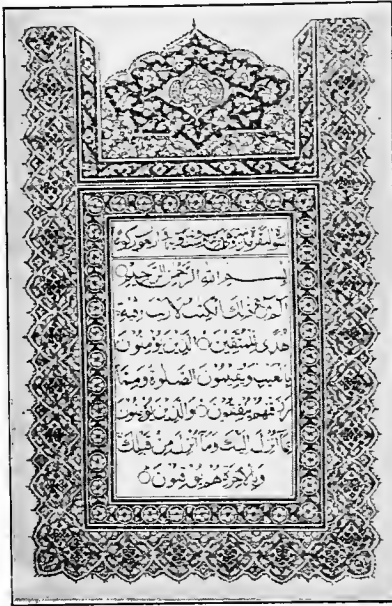 سورة البقرة
بِسْمِ اللهِ الرَّحْمٰنِ الرَّحِيْمِ○
الٓمّٓ ذٰلِكَ الْكِتٰبُ لَا رَيْبَ فِيْهِ
هُدًى لِّلْمُتَّقِيْنَ○ الَّذِيْنَ يُؤْمِنُوْنَ
بِالْغَيْبِ وَيُقِيْمُوْنَ الصَّلٰوةَ وَمِمَّا
رَزَقْنٰهُمْ يُنْفِقُوْنَ○ وَالَّذِيْنَ يُؤْمِنُوْنَ
بِمَآ اُنْزِلَ اِلَيْكَ وَمَآ اُنْزِلَ مِنْ قَبْلِكَ
وَبِالْاٰخِرَةِ هُمْ يُوْقِنُوْنَ○